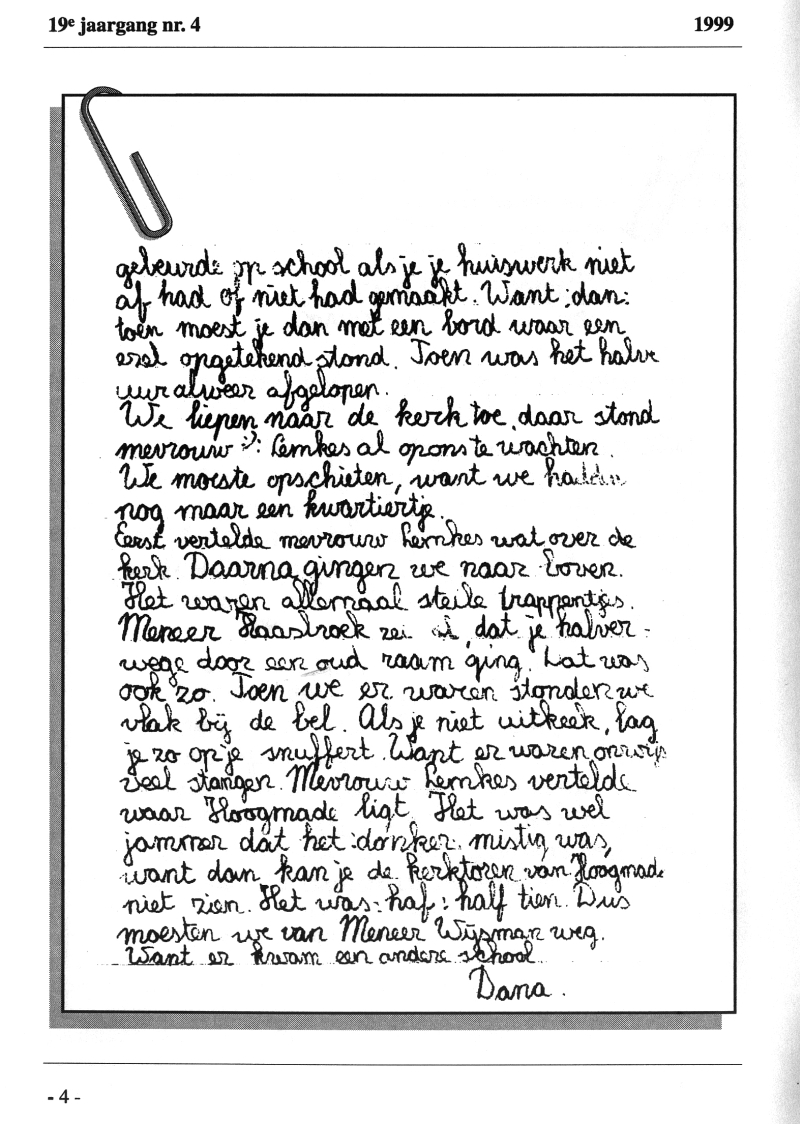 19e jaargang nr. 4 1999
gebeurde op school als je je huiswerk niet
af had of niet had gemaakt. Want :dan:
toen moest je dan met een bord waar een
ezel opgetekend stond. Toen was het halve
uur alweer afgelopen.
We liepen naar de kerk toe, daar stond
mevrouw Lemkes al op ons te wachten.
We moeste opschieten, want we hadden
nog maar een kwartiertje.
Eerst vertelde mevrouw Lemkes wat over de
kerk. Daarna gingen we naar boven.
Het waren allemaal steile trappentjes.
Meneer Haasbroek zei al, dat je halver-
wege door een oud raam ging. Dat was
ook zo. Toen we er waren stonden we
vlak bij de bel. Als je niet uitkeek, lag
je zo op je snuffert. Want er waren onwijs
veel stangen. Mevrouw Lemkes vertelde
waar Hoogmade ligt. Het was wel
jammer dat het :donker: mistig was,
want dan kan je de kerktoren van Hoogmade
niet zien. Het was :haf: half tien. Dus
moesten we van Meneer Wijsman weg.
Want er kwam een andere school.
Dana.
- 4 -